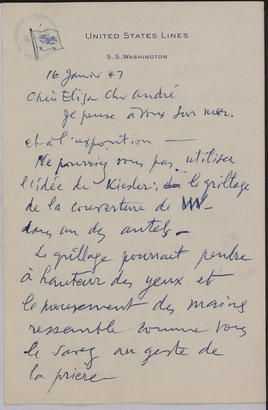 UNITED STATES LINES
S.S. WASHINGTON
16 Janvier 47
Chère Elisa Cher André
Je pense à vous sur mer.
et à l'exposition —
Ne pourriez vous pas utiliser
l'idée de Kiesler: le grillage
de la couverture de VVV
dans un des autels —
Le grillage pourrait pendre
à hauteur des yeux et
le mouvement des mains
ressemble comme vous
le savez au geste de
la prière